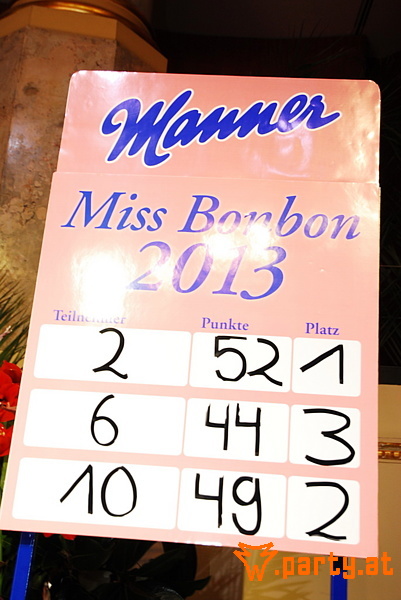 Manner
Miss Bonbon
2013
Teilnehmer Punkte Platz
2 52 1
6 44 3
10 49 2
party.at